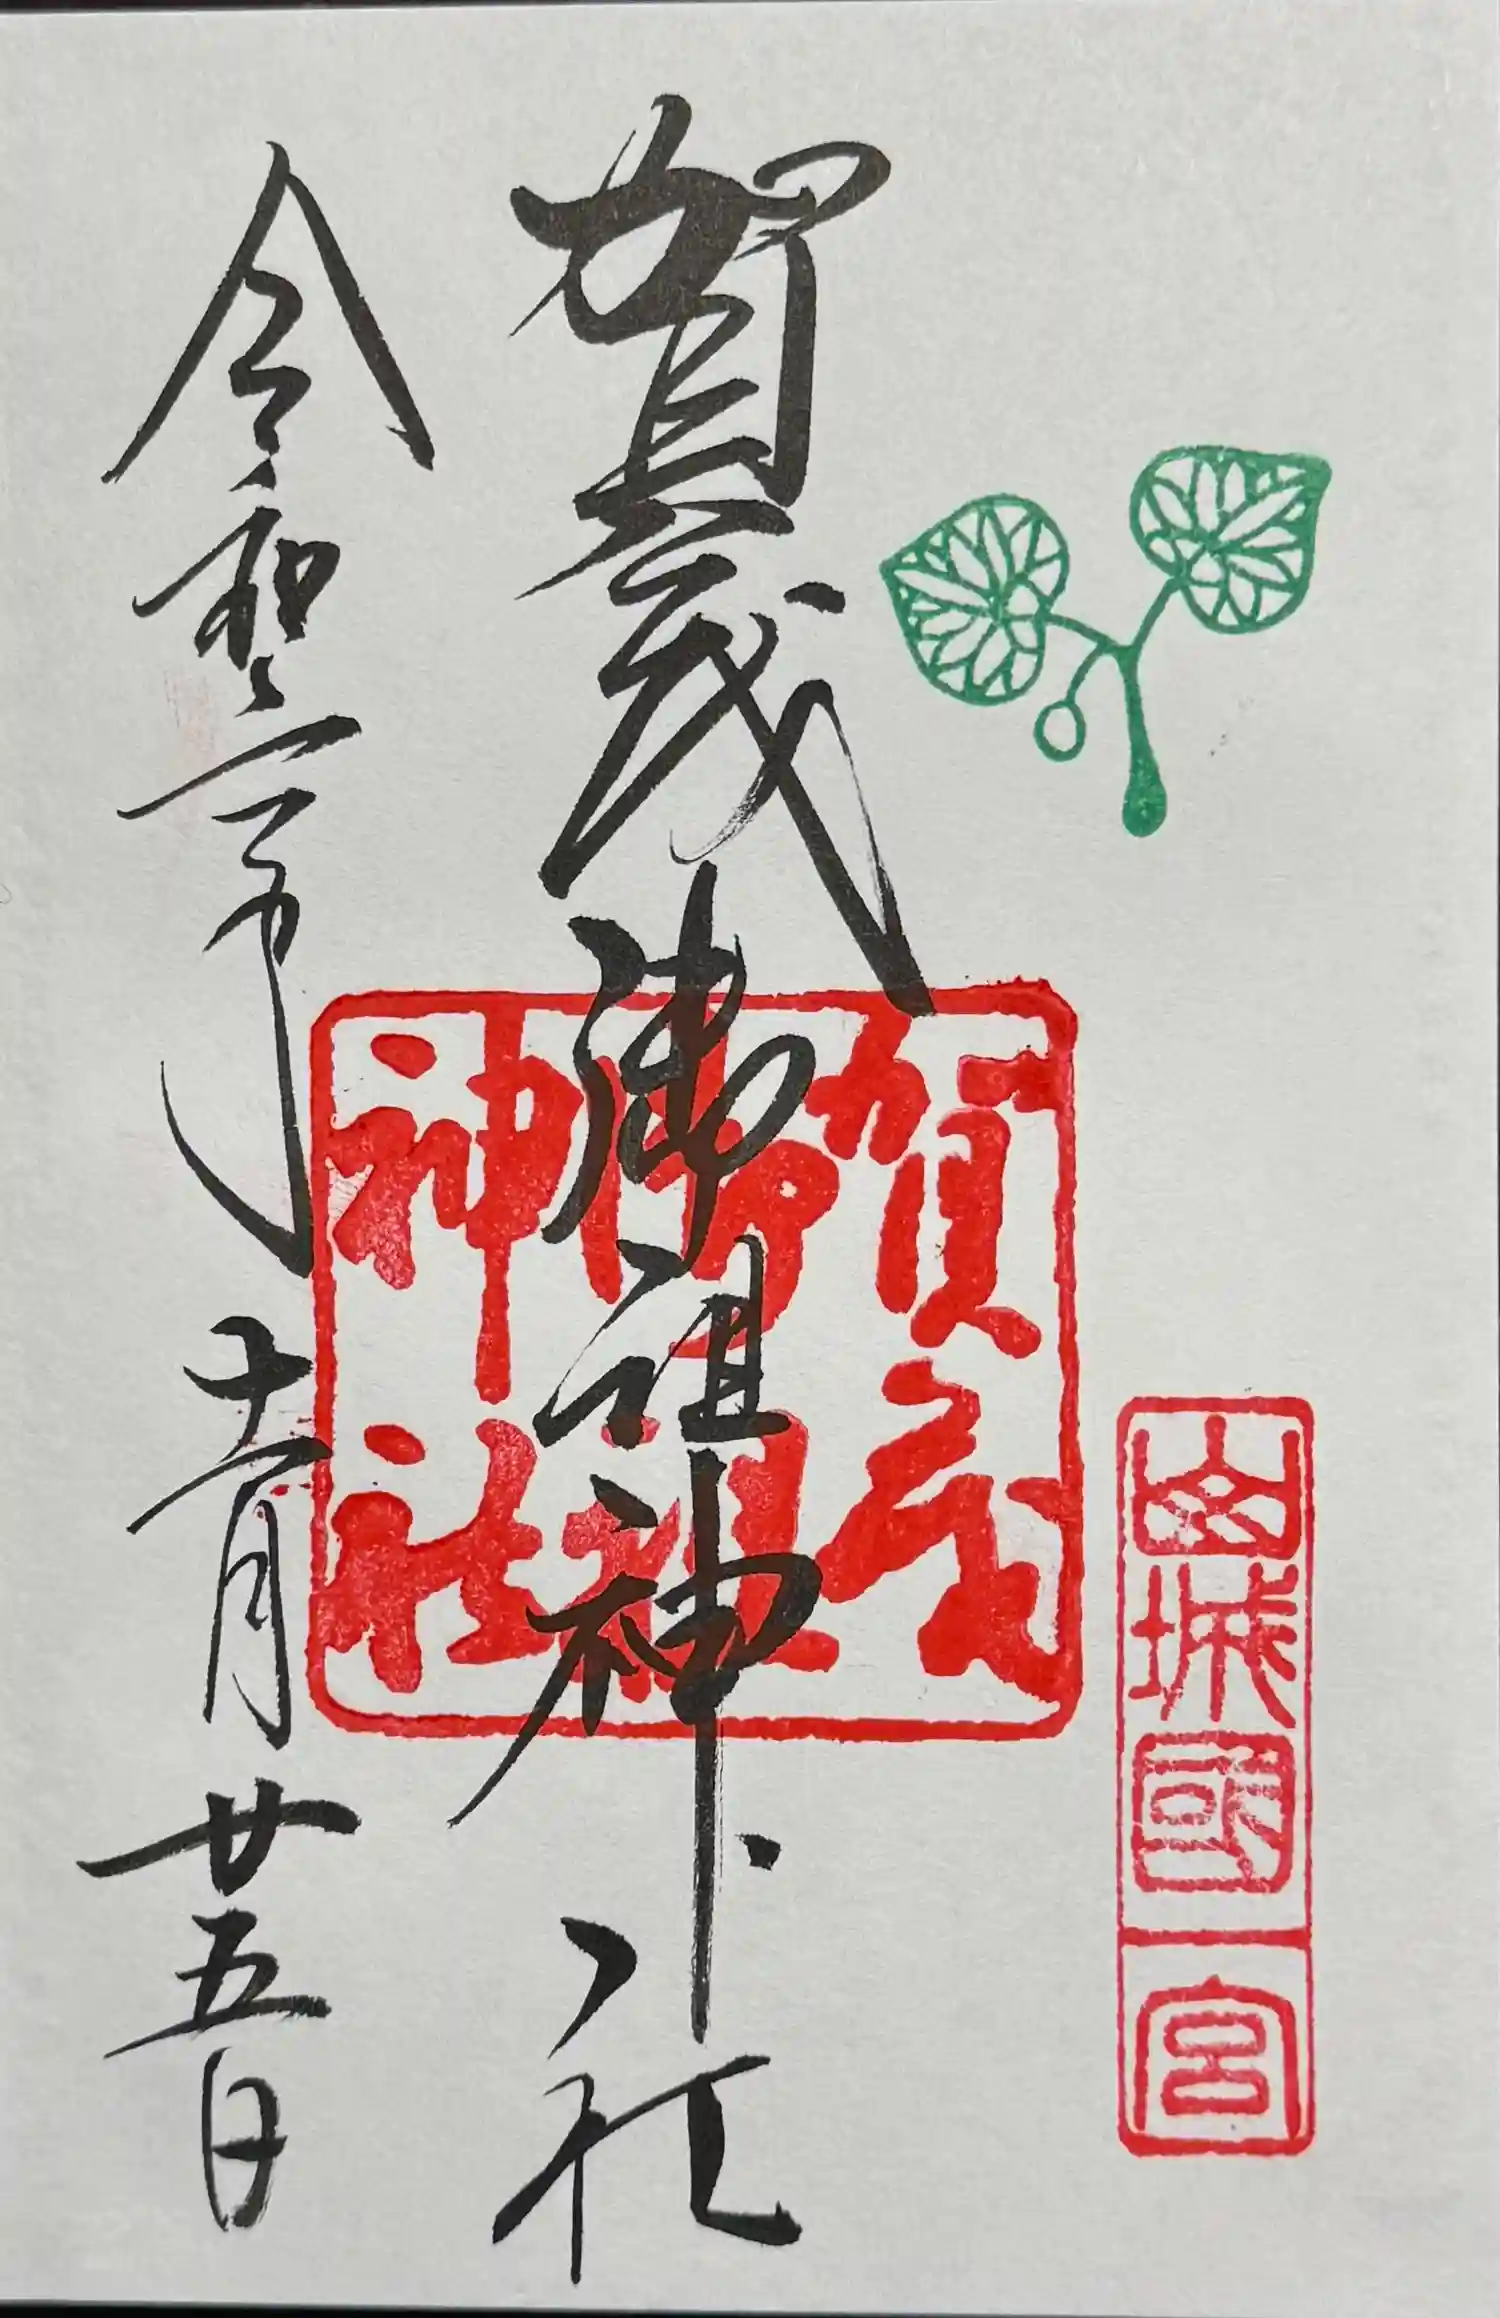 山城國一宮
賀茂御祖神社
賀茂
御祖
神社
令和三年十一月廿五日